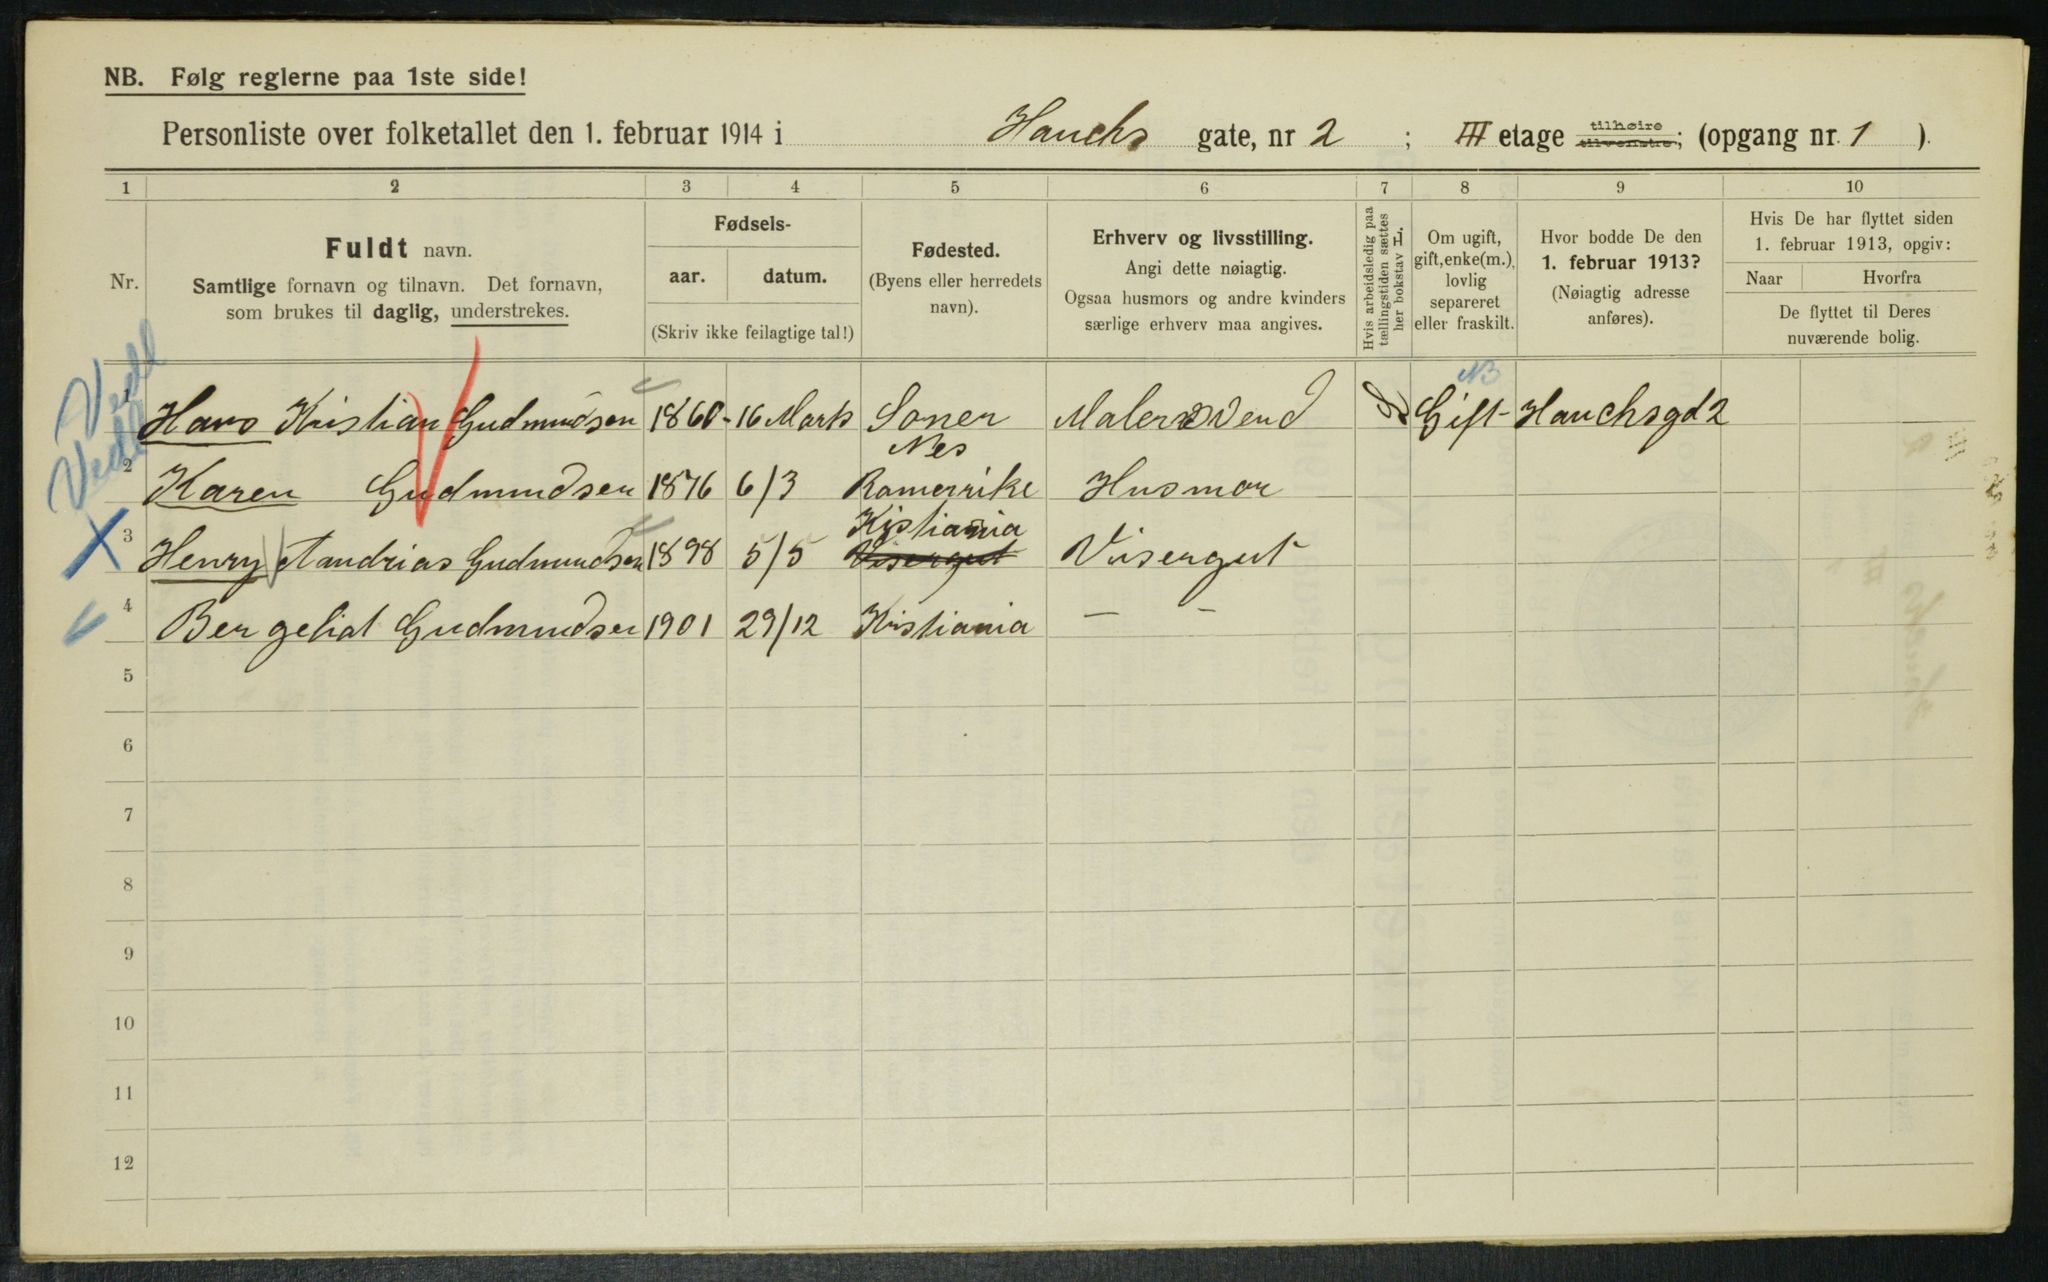 NB. Følg reglerne paa 1ste side!
Personliste over folketallet den 1. februar 1914 i Hauchs gate, nr 2 ; III etage tilhøire tilvenstre; (opgang nr. 1 ).
1 2 3 4 5 6 7 8 9 10
Nr.
Fuldt navn.
Samtlige fornavn og tilnavn. Det fornavn,
som brukes til daglig, understrekes.
Fødsels-
aar. datum.
(Skriv ikke feilagtige tal!)
Fødested.
(Byens eller herredets
navn).
Erhverv og livsstilling.
Angi dette nøiagtig.
Ogsaa husmors og andre kvinders
særlige erhverv maa angives.
Hvis arbeidsledig paa
tællingstiden sættes
her bokstav H.
Om ugift,
gift, enke(m.),
lovlig
separeret
eller fraskilt.
Hvor bodde De den
1. februar 1913?
(Nøiagtig adresse
anføres).
Hvis De har flyttet siden
1. februar 1913, opgiv:
Naar Hvorfra
De flyttet til Deres
nuværende bolig.
NB
1 Hans Kristian Gudmundsen 1860 - 16 Marts Soner Malersvend Gift - Hauchsgd 2
Nes
2 Karen Gudmundsen 1876 6/3 Romerrike Husmor
Kristiania
3 Henry Aandrias Gudmundsen 1898 5/5 Visergut Visergut
4 Bergeliot Gudmundsen 1901 29/12 Kristiania — -
5
6
7
8
9
10
11
12